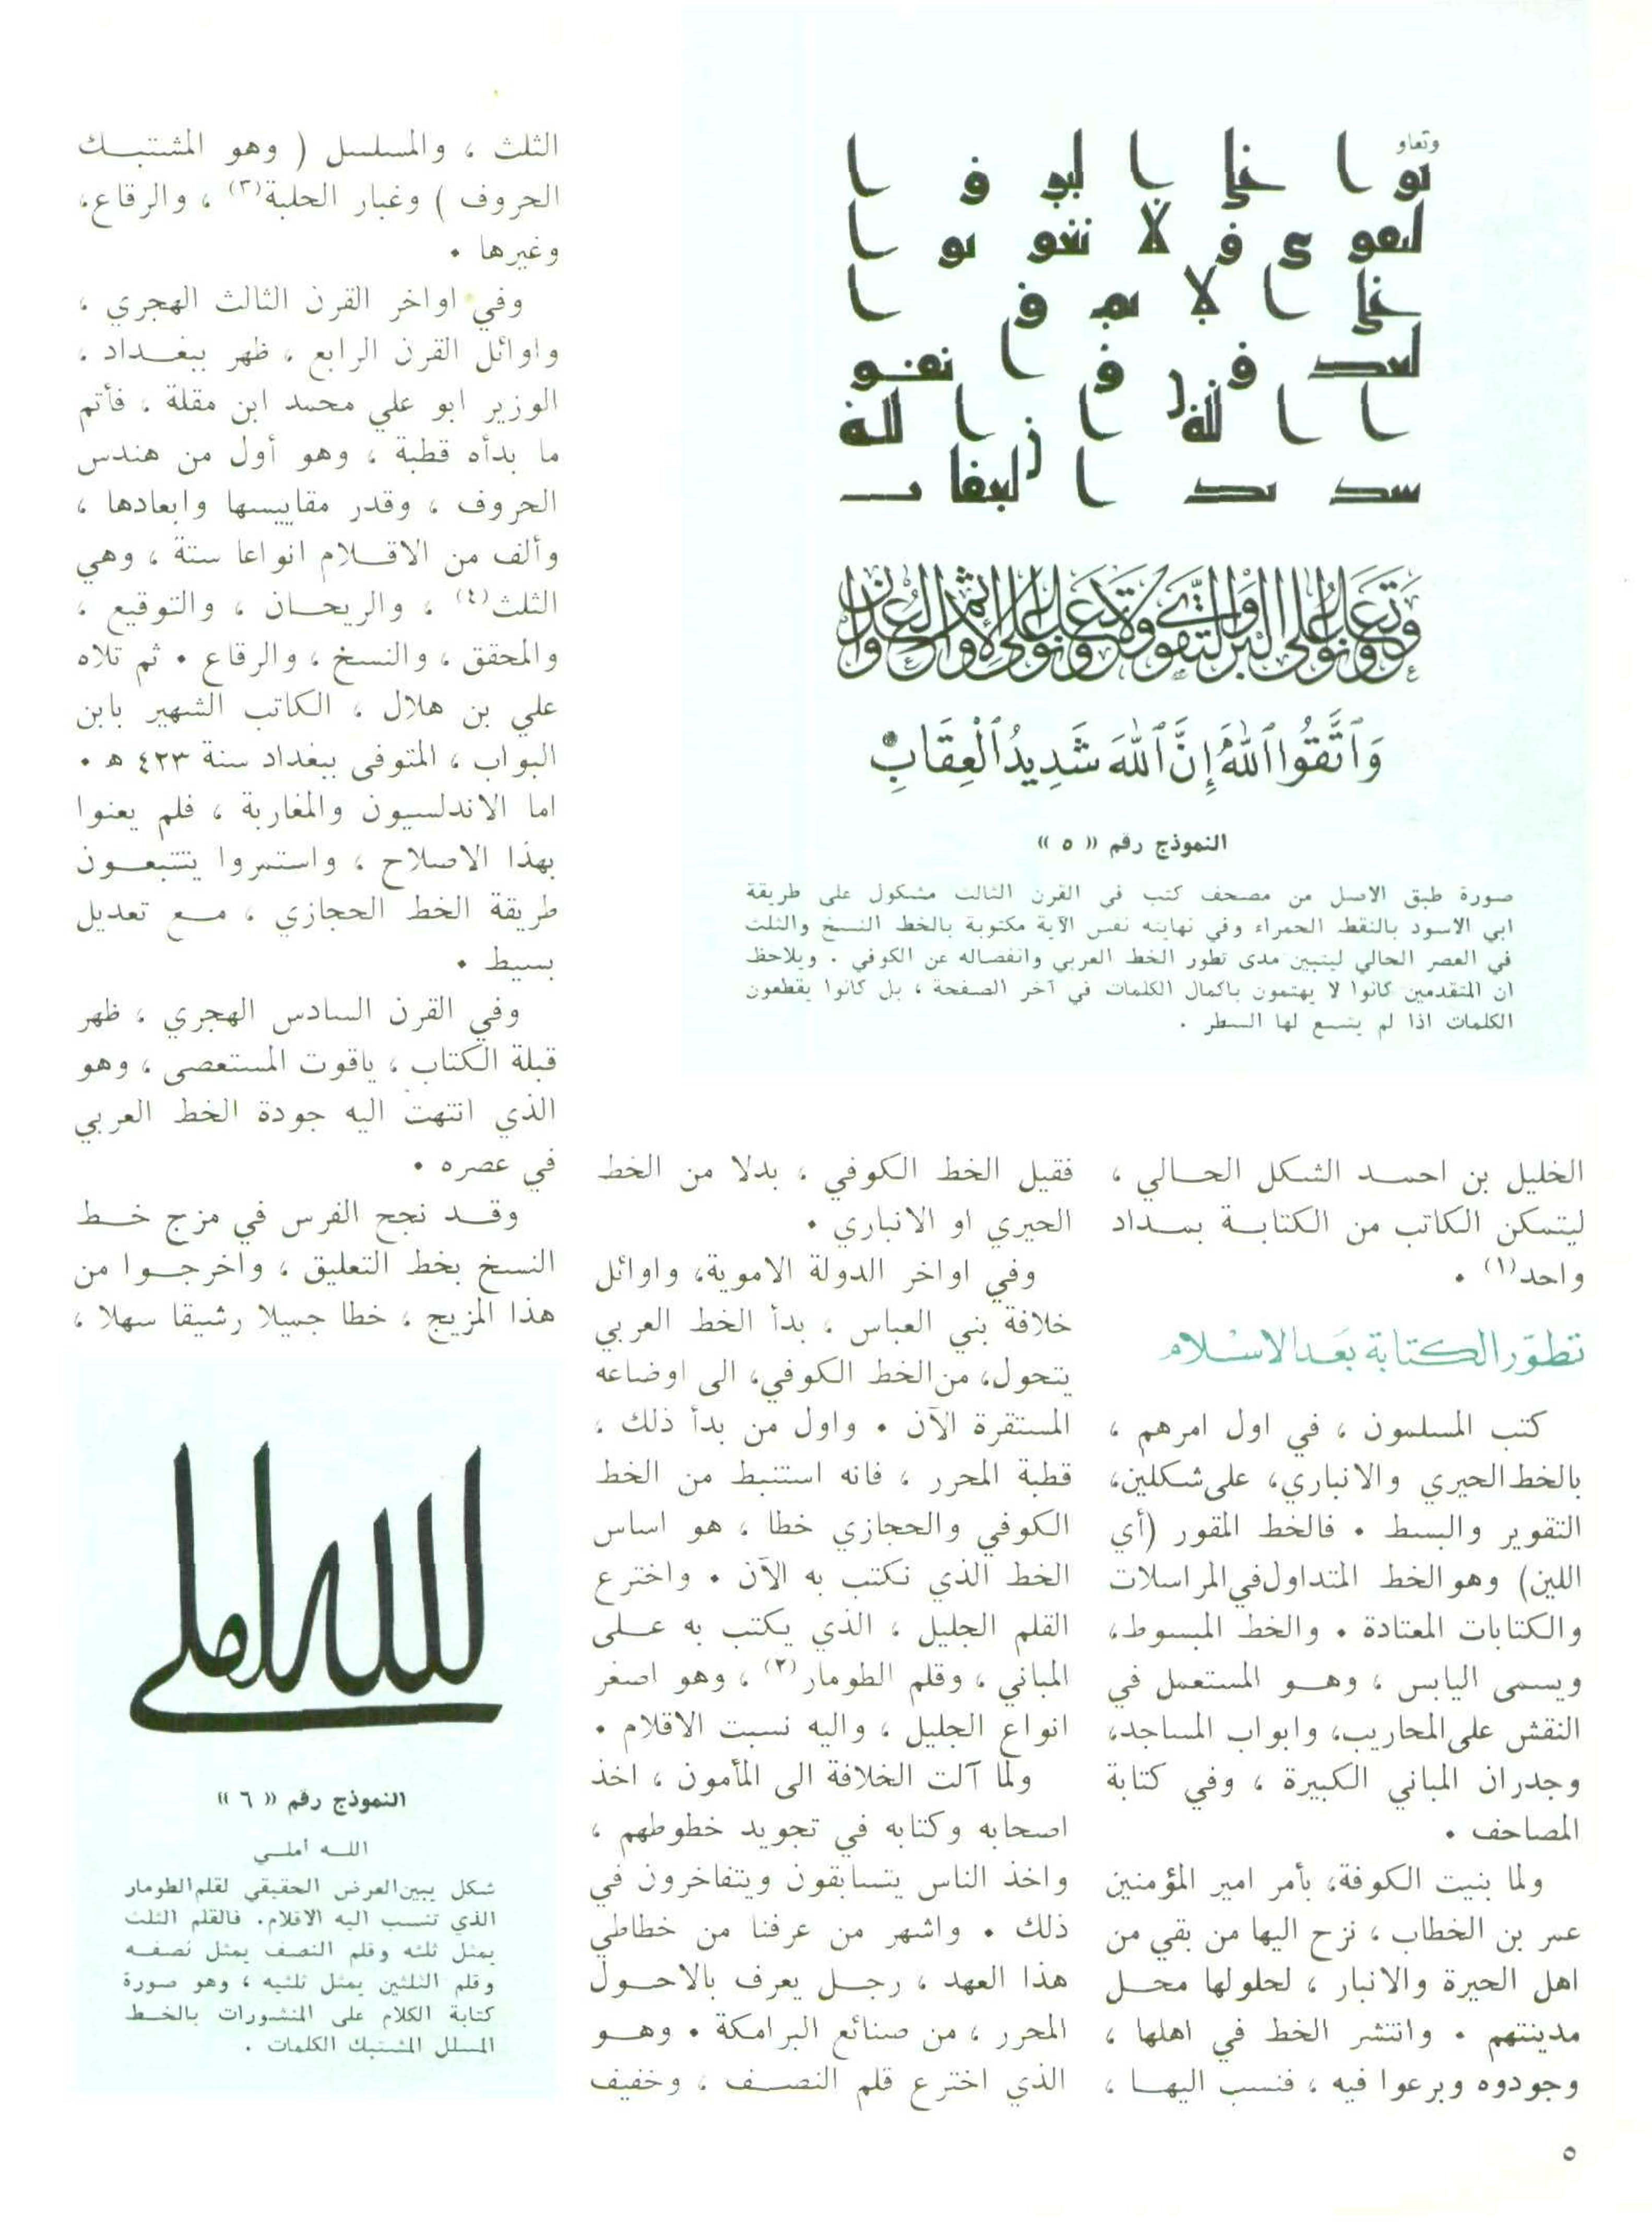 وتعاو
نوا على البر و ا
لتقوى و لا تعاو نوا
على ا لا ثم و ا
لعد و ا ن و ا تقو
ا ا لله ا ن ا لله
شد يد ا لعقا ب
وَتَعَاوَنُوا عَلَى الْبِرِّ وَالتَّقْوَى وَلَا تَعَاوَنُوا عَلَى الْإِثْمِ وَالْعُدْوَانِ
وَٱتَّقُوا ٱللَّهَ إِنَّ ٱللَّهَ شَدِيدُ ٱلْعِقَابِ
النموذج رقم « ٥ »
صورة طبق الاصل من مصحف كتب في القرن الثالث مشكول على طريقة
ابي الاسود بالنقط الحمراء وفي نهايته نفس الآية مكتوبة بالخط النسخ والثلث
في العصر الحالي ليتبين مدى تطور الخط العربي وانفصاله عن الكوفي . ويلاحظ
ان المتقدمين كانوا لا يهتمون باكمال الكلمات في آخر الصفحة ، بل كانوا يقطعون
الكلمات اذا لم يتسع لها السطر .
الخليل بن احمد الشكل الحالي ،
ليتمكن الكاتب من الكتابة بمداد
واحد(١) .
تطوّر الكتابة بَعد الاسْلام
كتب المسلمون ، في اول امرهم ،
بالخط الحيري والانباري، على شكلين،
التقوير والبسط . فالخط المقور (أي
اللين) وهو الخط المتداول في المراسلات
والكتابات المعتادة . والخط المبسوط،
ويسمى اليابس ، وهو المستعمل في
النقش على المحاريب، وابواب المساجد،
وجدران المباني الكبيرة ، وفي كتابة
المصاحف .
ولما بنيت الكوفة، بأمر امير المؤمنين
عمر بن الخطاب ، نزح اليها من بقي من
اهل الحيرة والانبار ، لحلولها محل
مدينتهم . وانتشر الخط في اهلها ،
وجودوه وبرعوا فيه ، فنسب اليها ،
فقيل الخط الكوفي ، بدلا من الخط
الحيري او الانباري .
وفي اواخر الدولة الاموية، واوائل
خلافة بني العباس ، بدأ الخط العربي
يتحول، من الخط الكوفي، الى اوضاعه
المستقرة الآن . واول من بدأ ذلك ،
قطبة المحرر ، فانه استنبط من الخط
الكوفي والحجازي خطا ، هو اساس
الخط الذي نكتب به الآن . واخترع
القلم الجليل ، الذي يكتب به على
المباني ، وقلم الطومار(٢) ، وهو اصغر
انواع الجليل ، واليه نسبت الاقلام .
ولما آلت الخلافة الى المأمون ، اخذ
اصحابه وكتابه في تجويد خطوطهم ،
واخذ الناس يتسابقون ويتفاخرون في
ذلك . واشهر من عرفنا من خطاطي
هذا العهد ، رجل يعرف بالاحول
المحرر ، من صنائع البرامكة . وهو
الذي اخترع قلم النصف ، وخفيف
الثلث ، والمسلسل ( وهو المشتبك
الحروف ) وغبار الحلبة(٣) ، والرقاع،
وغيرها .
وفي اواخر القرن الثالث الهجري ،
واوائل القرن الرابع ، ظهر ببغداد ،
الوزير ابو علي محمد ابن مقلة ، فأتم
ما بدأه قطبة ، وهو أول من هندس
الحروف ، وقدر مقاييسها وابعادها ،
وألف من الاقلام انواعا ستة ، وهي
الثلث(٤) ، والريحان ، والتوقيع ،
والمحقق ، والنسخ ، والرقاع . ثم تلاه
علي بن هلال ، الكاتب الشهير بابن
البواب ، المتوفى ببغداد سنة ٤٢٣ هـ .
اما الاندلسيون والمغاربة ، فلم يعنوا
بهذا الاصلاح ، واستمروا يتتبعون
طريقة الخط الحجازي ، مع تعديل
بسيط .
وفي القرن السادس الهجري ، ظهر
قبلة الكتاب ، ياقوت المستعصى ، وهو
الذي انتهت اليه جودة الخط العربي
في عصره .
وقد نجح الفرس في مزج خط
النسخ بخط التعليق ، واخرجوا من
هذا المزيج ، خطا جميلا رشيقا سهلا ،
الله املي
النموذج رقم « ٦ »
الله أملي
شكل يبين العرض الحقيقي لقلم الطومار
الذي تنسب اليه الاقلام. فالقلم الثلث
يمثل ثلثه وقلم النصف يمثل نصفه
وقلم الثلثين يمثل ثلثيه ، وهو صورة
كتابة الكلام على المنشورات بالخط
المسلل المشتبك الكلمات .
٥